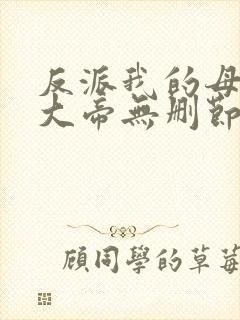 反派我的母
大帝無刪節
顧同學的草莓